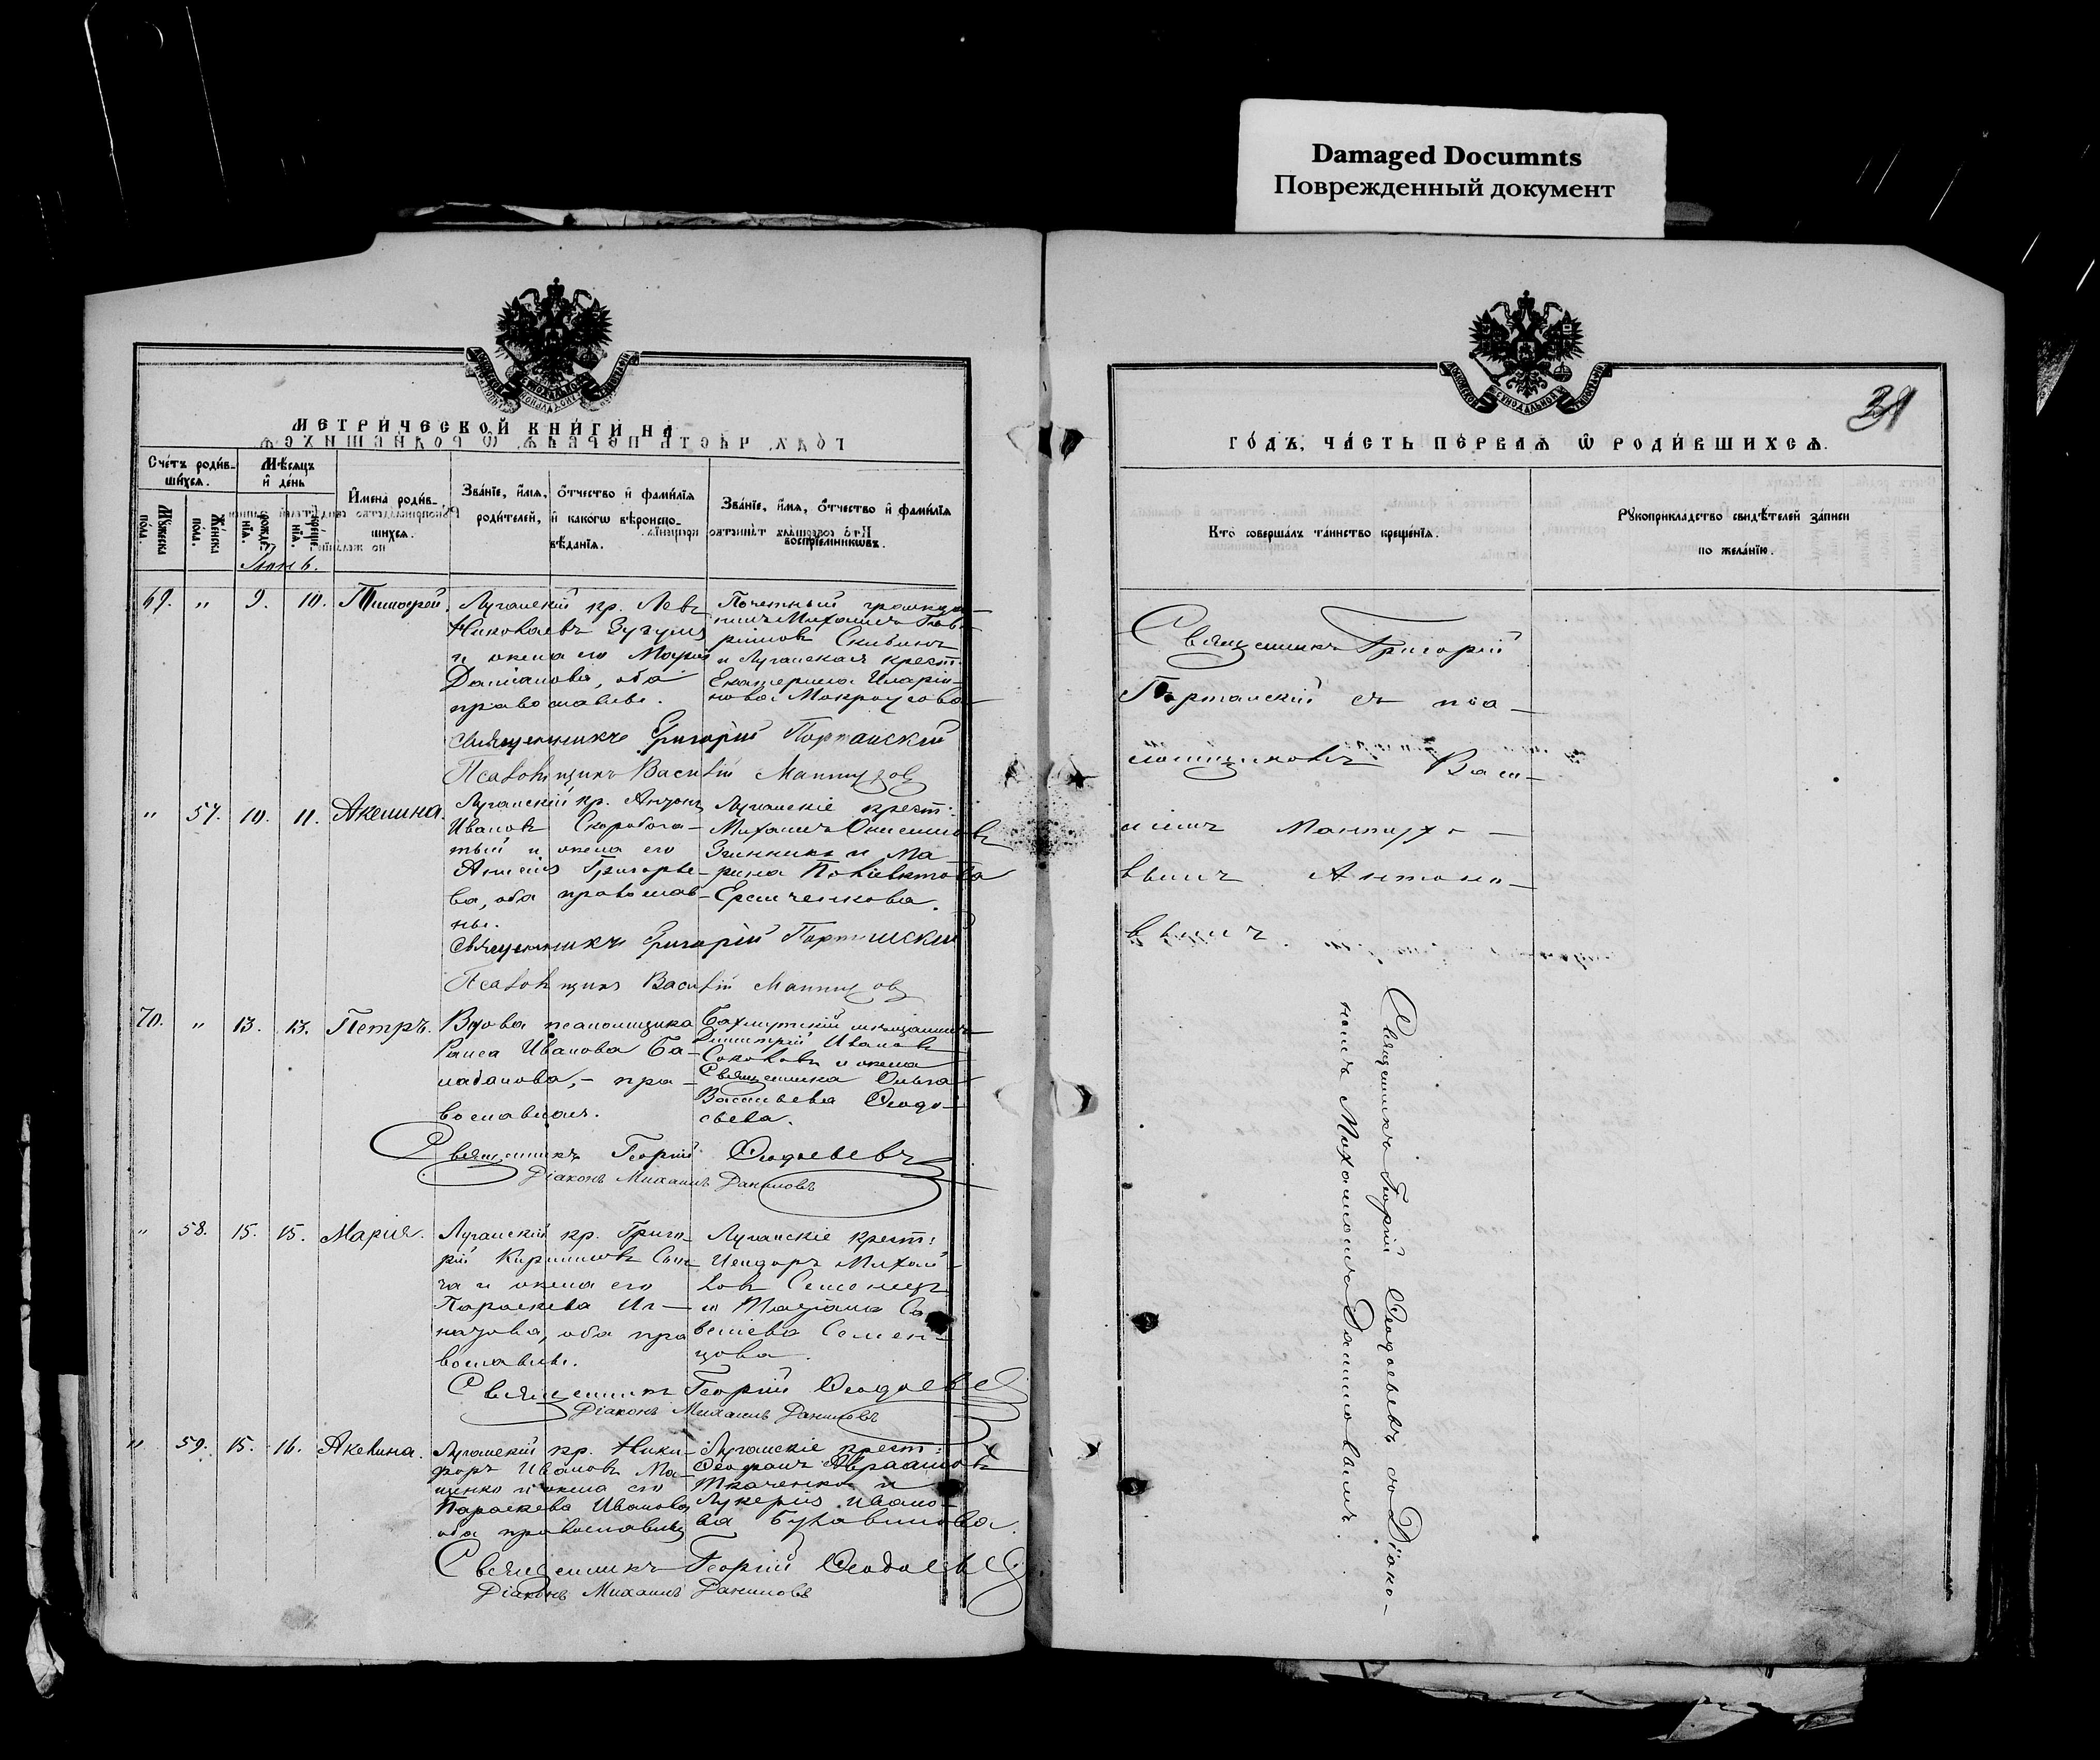 Damaged Documnts
Поврежденный документ
МЕТРИЧЕСКОЙ КНИГИ НА
Счетъ родив-
шихся.
Мѣсяцъ
и день
Мужеска
пола.
Женска
пола.
рожде-
нія.
креще-
нія.
Имена родив-
шихся.
Званіе, имя, отчество и фамилія
родителей, и какогѡ вѣроиспо-
вѣданія.
Званіе, имя, отчество и фамилія
воспріемникѡвъ.
Іюнь.
69. " 9. 10. Тимофей.
Луганскій кр. Левъ
Николаевъ
и жена его Марія
оба
православны.
Почетный гражда-
нинъ Михаилъ Гав-
риловъ
и Луганская крест.
Екатерина Иларіо-
нова Мокроусова
Священникъ Григорій Портанскій
Псаломщикъ Василій Мантузов
" 57. 10. 11. Акилина.
Луганскій кр. Антонъ
Ивановъ Скоробога-
тый и жена его
Григорье-
ва, оба православ-
ны.
Луганскіе крест.
Михаилъ Онисимовъ
и Ма-
рина Поликтова
Еремченкова.
Священникъ Григорій Портанскій
Псаломщикъ Василій Мантузов
70. " 13. 13. Петръ.
Вдова псаломщика
Раиса Иванова Ба-
лабанова, - пра-
вославная.
Бахмутскій мѣщанинъ
Димитрій Ивановъ
Соколовъ и жена
Священника Ольга
Васильева Ѳеодо-
сьева.
Священникъ Георгій Ѳеодосьевъ
Діаконъ Михаилъ Даниловъ
" 58. 15. 15. Марія.
Луганскій кр. Григо-
рій Кирилловъ
и жена его
Параскева Иг-
натова, оба пра-
вославны.
Луганскіе крест:
Исидоръ Михай-
ловъ Семенцъ
и Татіана Са-
веліева Семен-
цова.
Священникъ Георгій Ѳеодосьевъ
Діаконъ Михаилъ Даниловъ
" 59. 15. 16. Акилина.
Луганскій кр. Ники-
форъ Ивановъ Ма-
щенко и жена его
Параскева Иванова
оба православны
Луганскіе крест:
Ѳеофанъ Авраамовъ
Ткаченко и
Лукерія Ивано-
ва Булавинова.
Священникъ Георгій Ѳеодосьевъ
Діаконъ Михаилъ Даниловъ
31
ГОДЪ, ЧАСТЬ ПЕРВАЯ Ѡ РОДИВШИХСЯ.
Кто совершалъ таинство крещенія.
Рукоприкладство свидѣтелей записи
по желанію.
Священникъ Григорій
Портанскій съ пса-
ломщикомъ Васи-
ліемъ Мантузо-
вымъ Антоно-
вымъ.
Священникъ Георгій Ѳеодосьевъ съ Діако-
номъ Михаиломъ Даниловымъ.